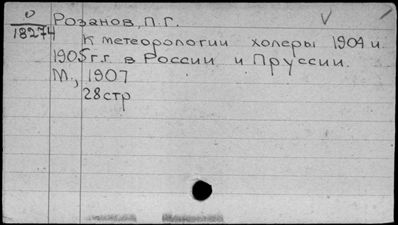 О
18274
Розанов, П. Г.
К метеорологии холеры 1904 и
1905 г.г. в России и Пруссии.
М., 1907
28 стр